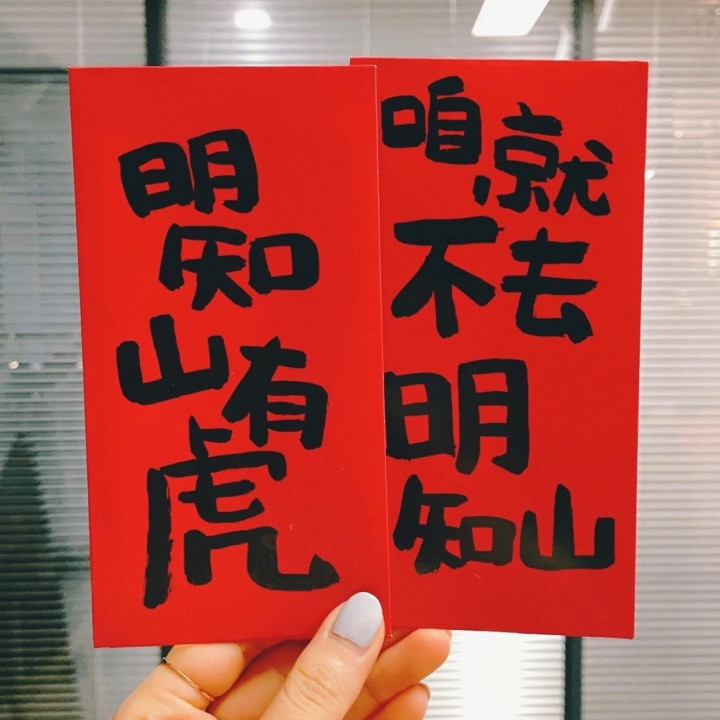 明
知
山有
虎
咱就
不去
明
知山